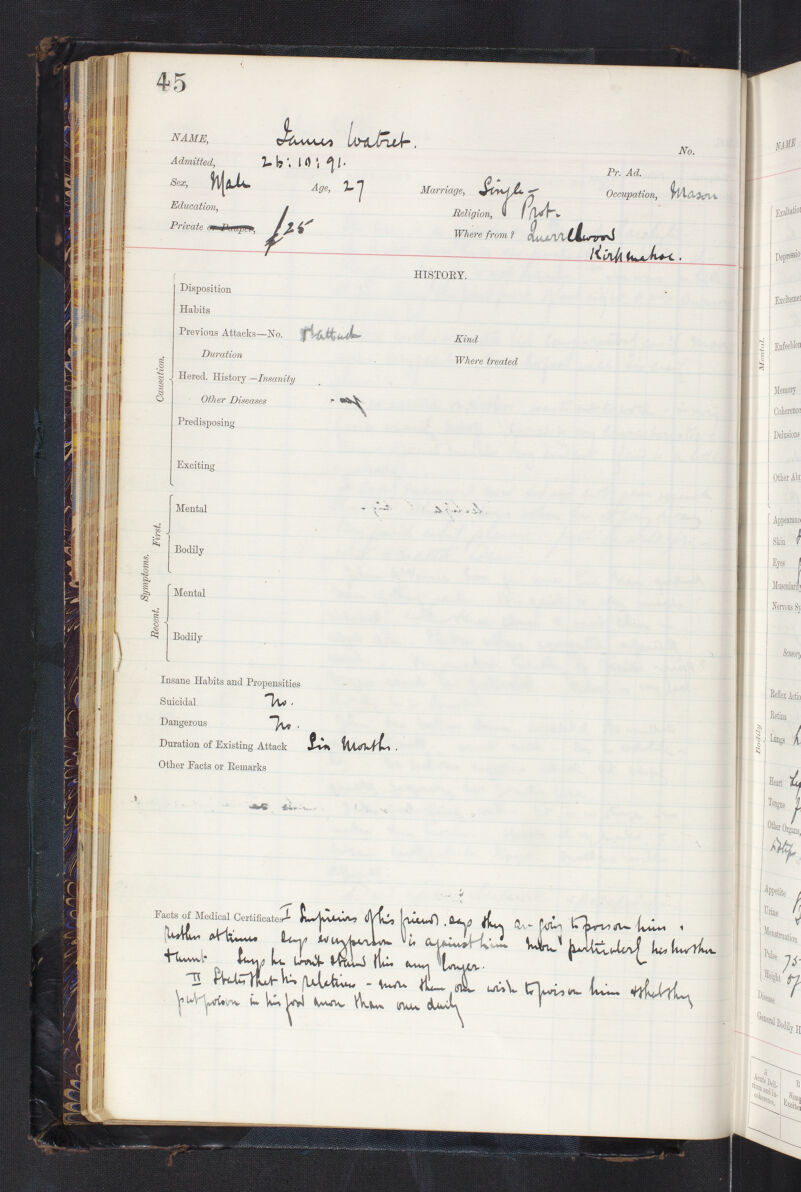 45
NAME, James Watret.
No.
Admitted, 26:10:91.
Pr. Ad.
Sex, Male Age, 27 Marriage, Single Occupation, Mason
Education, Religion, Prot.
Private or Pauper, £25 Where from? Quarrelwood
Kirkmahoe.
HISTORY.
Causation.
Disposition
Habits
Previous Attacks—No. Kind
Duration Where treated
Hered. History—Insanity
Other Diseases
Predisposing
Exciting
Symptoms.
First.
Mental
Bodily
Recent.
Mental
Bodily
Insane Habits and Propensities
Suicidal No.
Dangerous No.
Duration of Existing Attack Six Months.
Other Facts or Remarks
Facts of Medical Certificates I Suspicious of his friends. Says they are going to poison him.
Restless at times Says every person is against him more particularly his mother
+ aunt. Says he wont stand this any longer.
II States that his relatives - more than one wish to poison him & that they
put poison in his food more than once daily
NAME
Mental.
Exaltation
Depression
Excitement
Enfeeblem
Memory
Coherence
Delusions
Other Ab
Bodily
Appearance
Skin
Eyes
Muscularity
Nervous Sy
Sensory
Reflex Actio
Retina
Lungs
Heart
Tongue
Other Organs,
Appetite
Urine
Menstruation
Pulse 75
Height
Disease
General Bodily H
A
Acute Deli-
rium and In-
coherence.
B